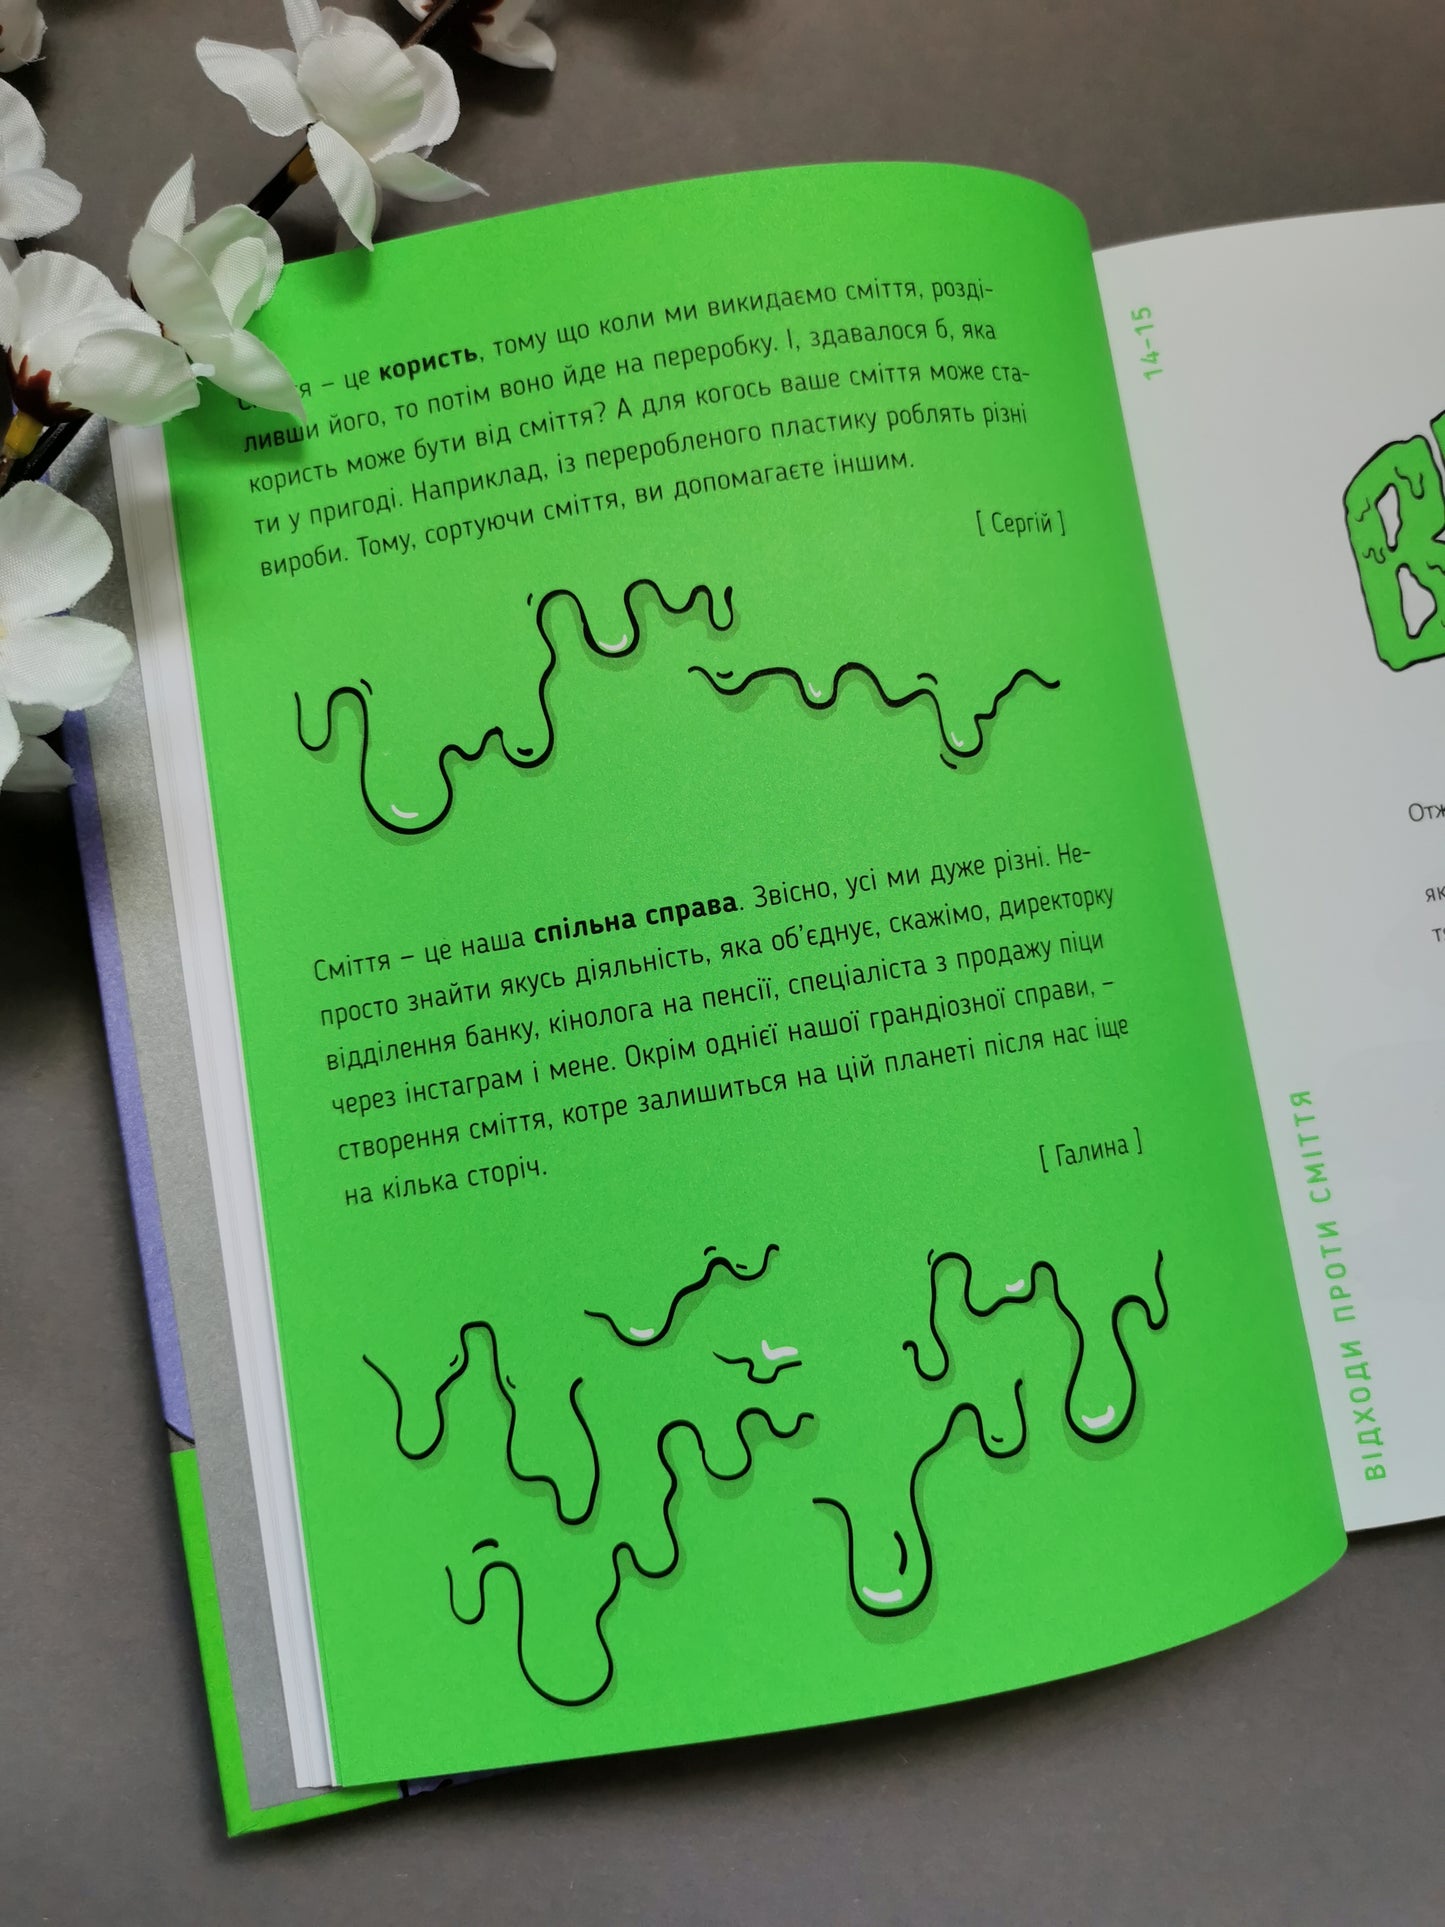 – це користь, тому що коли ми викидаємо сміття, розді-
ливши його, то потім воно йде на переробку. І, здавалося б, яка
користь може бути від сміття? А для когось ваше сміття може ста-
ти у пригоді. Наприклад, із переробленого пластику роблять різні
вироби. Тому, сортуючи сміття, ви допомагаєте іншим.
[ Сергій ]
Сміття – це наша спільна справа. Звісно, усі ми дуже різні. Не-
просто знайти якусь діяльність, яка об’єднує, скажімо, директорку
відділення банку, кінолога на пенсії, спеціаліста з продажу піци
через інстаграм і мене. Окрім однієї нашої грандіозної справи, –
створення сміття, котре залишиться на цій планеті після нас іще
на кілька сторіч.
[ Галина ]
14–15
ВІДХОДИ ПРОТИ СМІТТЯ